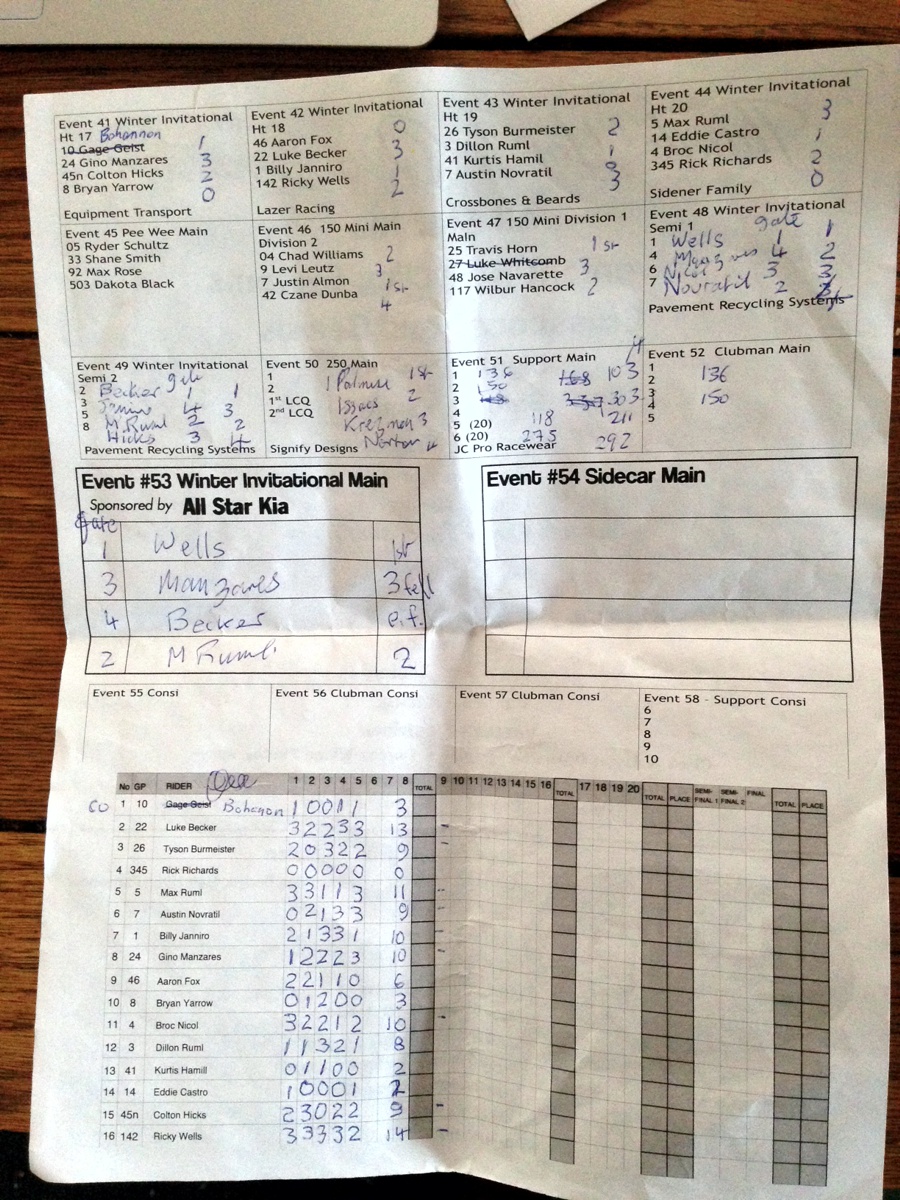 Event 41 Winter Invitational
Ht 17 Bohannon
10 Gage Geist 1
24 Gino Manzares 3
45n Colton Hicks 2
8 Bryan Yarrow 0
Equipment Transport
Event 42 Winter Invitational
Ht 18
46 Aaron Fox 0
22 Luke Becker 3
1 Billy Janniro 1
142 Ricky Wells 2
Lazer Racing
Event 43 Winter Invitational
Ht 19
26 Tyson Burmeister 2
3 Dillon Ruml 1
41 Kurtis Hamil 0
7 Austin Novratil 3
Crossbones & Beards
Event 44 Winter Invitational
Ht 20
5 Max Ruml 3
14 Eddie Castro 1
4 Broc Nicol 2
345 Rick Richards 0
Sidener Family
Event 45 Pee Wee Main
05 Ryder Schultz
33 Shane Smith
92 Max Rose
503 Dakota Black
Event 46 150 Mini Main
Division 2
04 Chad Williams 2
9 Levi Leutz 3
7 Justin Almon 1st
42 Czane Dunba 4
Event 47 150 Mini Division 1
Main
25 Travis Horn 1st
27 Luke Whitcomb
48 Jose Navarette 3
117 Wilbur Hancock 2
Event 48 Winter Invitational
Semi 1 gate
1 Wells 1 1
4 Manzares 4 2
6 Nicol 3 3
7 Novratil 2
Pavement Recycling Systems
Event 49 Winter Invitational
Semi 2 gate
2 Becker 1 1
3 4 3
5 M Ruml 2 2
8 Hicks 3 4
Pavement Recycling Systems
Event 50 250 Main
1 1st
2
1st LCQ Isaacs 2
2nd LCQ 3
Signify Designs Norton 4
Event 51 Support Main
1 136 168 103
2 150
3 303
4
5 (20) 118 211
6 (20) 275 292
JC Pro Racewear
Event 52 Clubman Main
1
2 136
3
4 150
5
Event #53 Winter Invitational Main
Sponsored by All Star Kia
gate
1 Wells 1st
3 Manzares 3 fell
4 Becker e.f.
2 M Ruml 2
Event #54 Sidecar Main
Event 55 Consi
Event 56 Clubman Consi
Event 57 Clubman Consi
Event 58 - Support Consi
6
7
8
9
10
No GP RIDER 1 2 3 4 5 6 7 8 TOTAL 9 10 11 12 13 14 15 16 TOTAL 17 18 19 20 TOTAL PLACE SEMI-FINAL 1 SEMI-FINAL 2 FINAL TOTAL PLACE
1 10 Gage Geist Bohannon 1 0 0 1 1 3
2 22 Luke Becker 3 2 2 3 3 13
3 26 Tyson Burmeister 2 0 3 2 2 9
4 345 Rick Richards 0 0 0 0 0 0
5 5 Max Ruml 3 3 1 1 3 11
6 7 Austin Novratil 0 2 1 3 3 9
7 1 Billy Janniro 2 1 3 3 1 10
8 24 Gino Manzares 1 2 2 2 3 10
9 46 Aaron Fox 2 2 1 1 0 6
10 8 Bryan Yarrow 0 1 2 0 0 3
11 4 Broc Nicol 3 2 2 1 2 10
12 3 Dillon Ruml 1 1 3 2 1 8
13 41 Kurtis Hamill 0 1 1 0 0 2
14 14 Eddie Castro 1 0 0 0 1 2
15 45n Colton Hicks 2 3 0 2 2 9
16 142 Ricky Wells 3 3 3 3 2 14